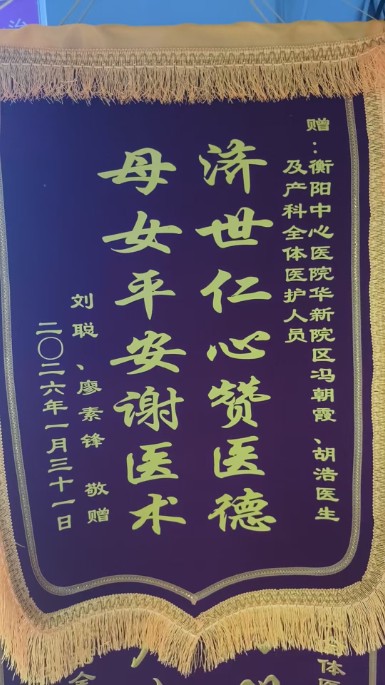 赠：衡阳中心医院华新院区冯朝霞、胡浩医生
及产科全体医护人员
济世仁心赞医德
母女平安谢医术
刘聪、廖素锋 敬赠
二〇二六年一月三十一日